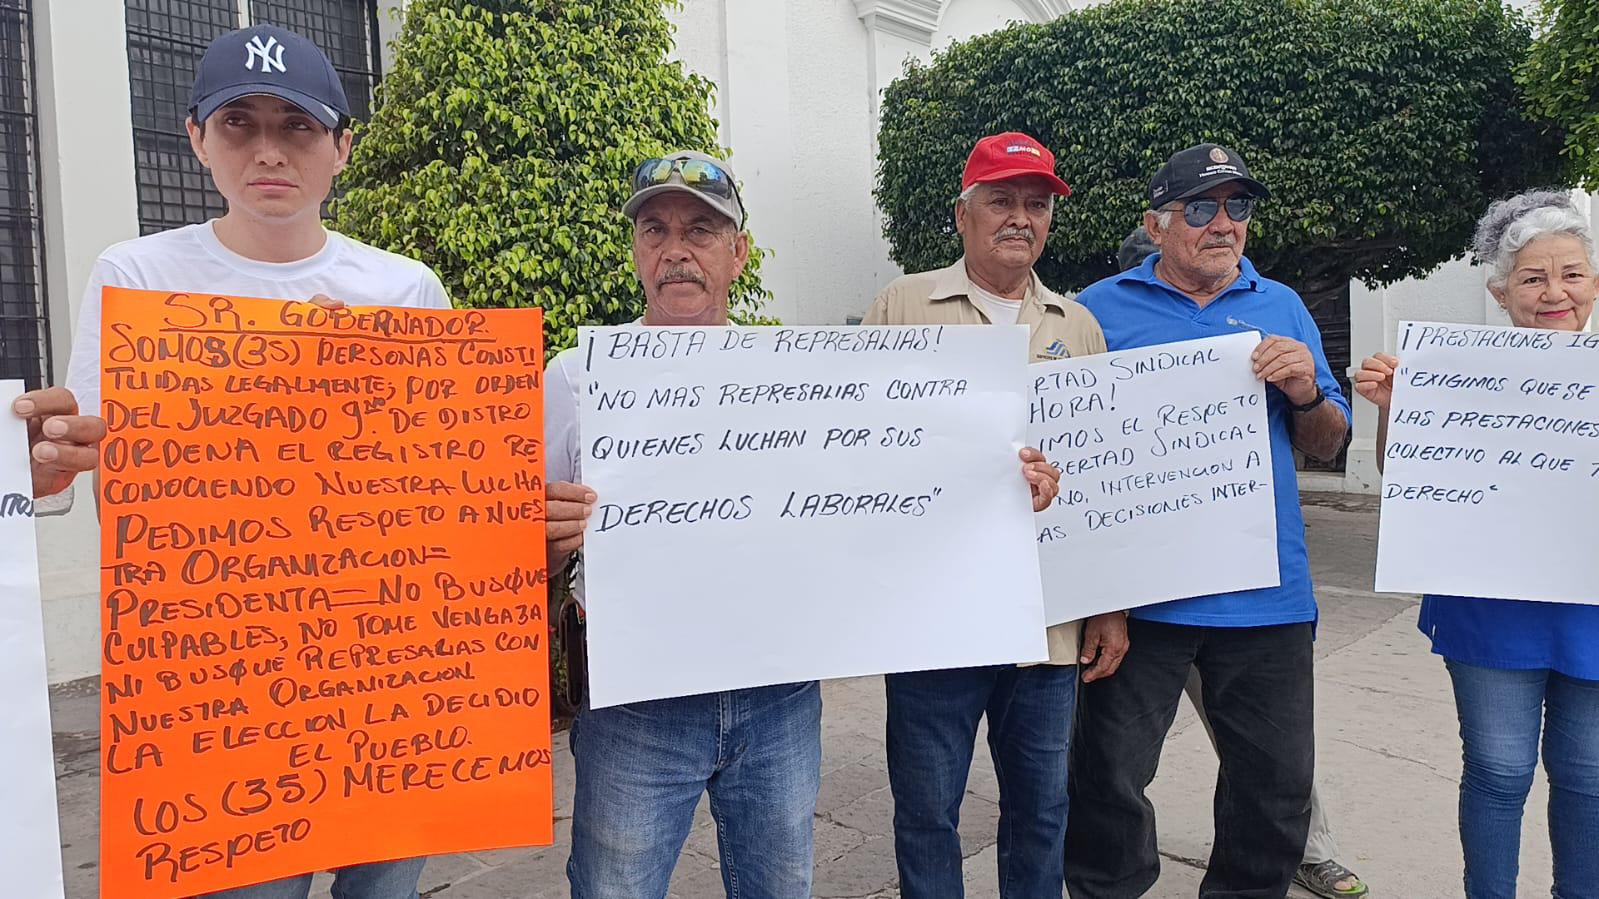 NY
SR. GOBERNADOR.
SOMOS (35) PERSONAS CONSTI
TUIDAS LEGALMENTE; POR ORDEN
DEL JUZGADO 9no DE DISTRO
ORDENA EL REGISTRO RE
CONOCIENDO NUESTRA LUCHA
PEDIMOS RESPETO A NUES
TRA ORGANIZACION=
PRESIDENTA=NO BUSQUE
CULPABLES, NO TOME VENGAZA
NI BUSQUE REPRESARIAS CON
NUESTRA ORGANIZACION
LA ELECCION LA DECIDIO
EL PUEBLO.
LOS (35) MERECEMOS
RESPETO
¡BASTA DE REPRESALIAS!
"NO MAS REPRESALIAS CONTRA
QUIENES LUCHAN POR SUS
DERECHOS LABORALES"
ERTAD SINDICAL
HORA!
IMOS EL RESPETO
BERTAD SINDICAL
NO, INTERVENCION A
AS DECISIONES INTER-
¡PRESTACIONES IG
"EXIGIMOS QUE SE
LAS PRESTACIONES
COLECTIVO AL QUE T
DERECHO"